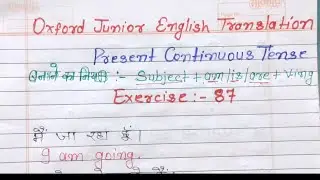 Oxford Junior English Translation
Present Continuous Tense
बनाने का नियम :- Subject + am/is/are + Ving
Exercise :- 87
मैं जा रहा हूँ।
I am going.